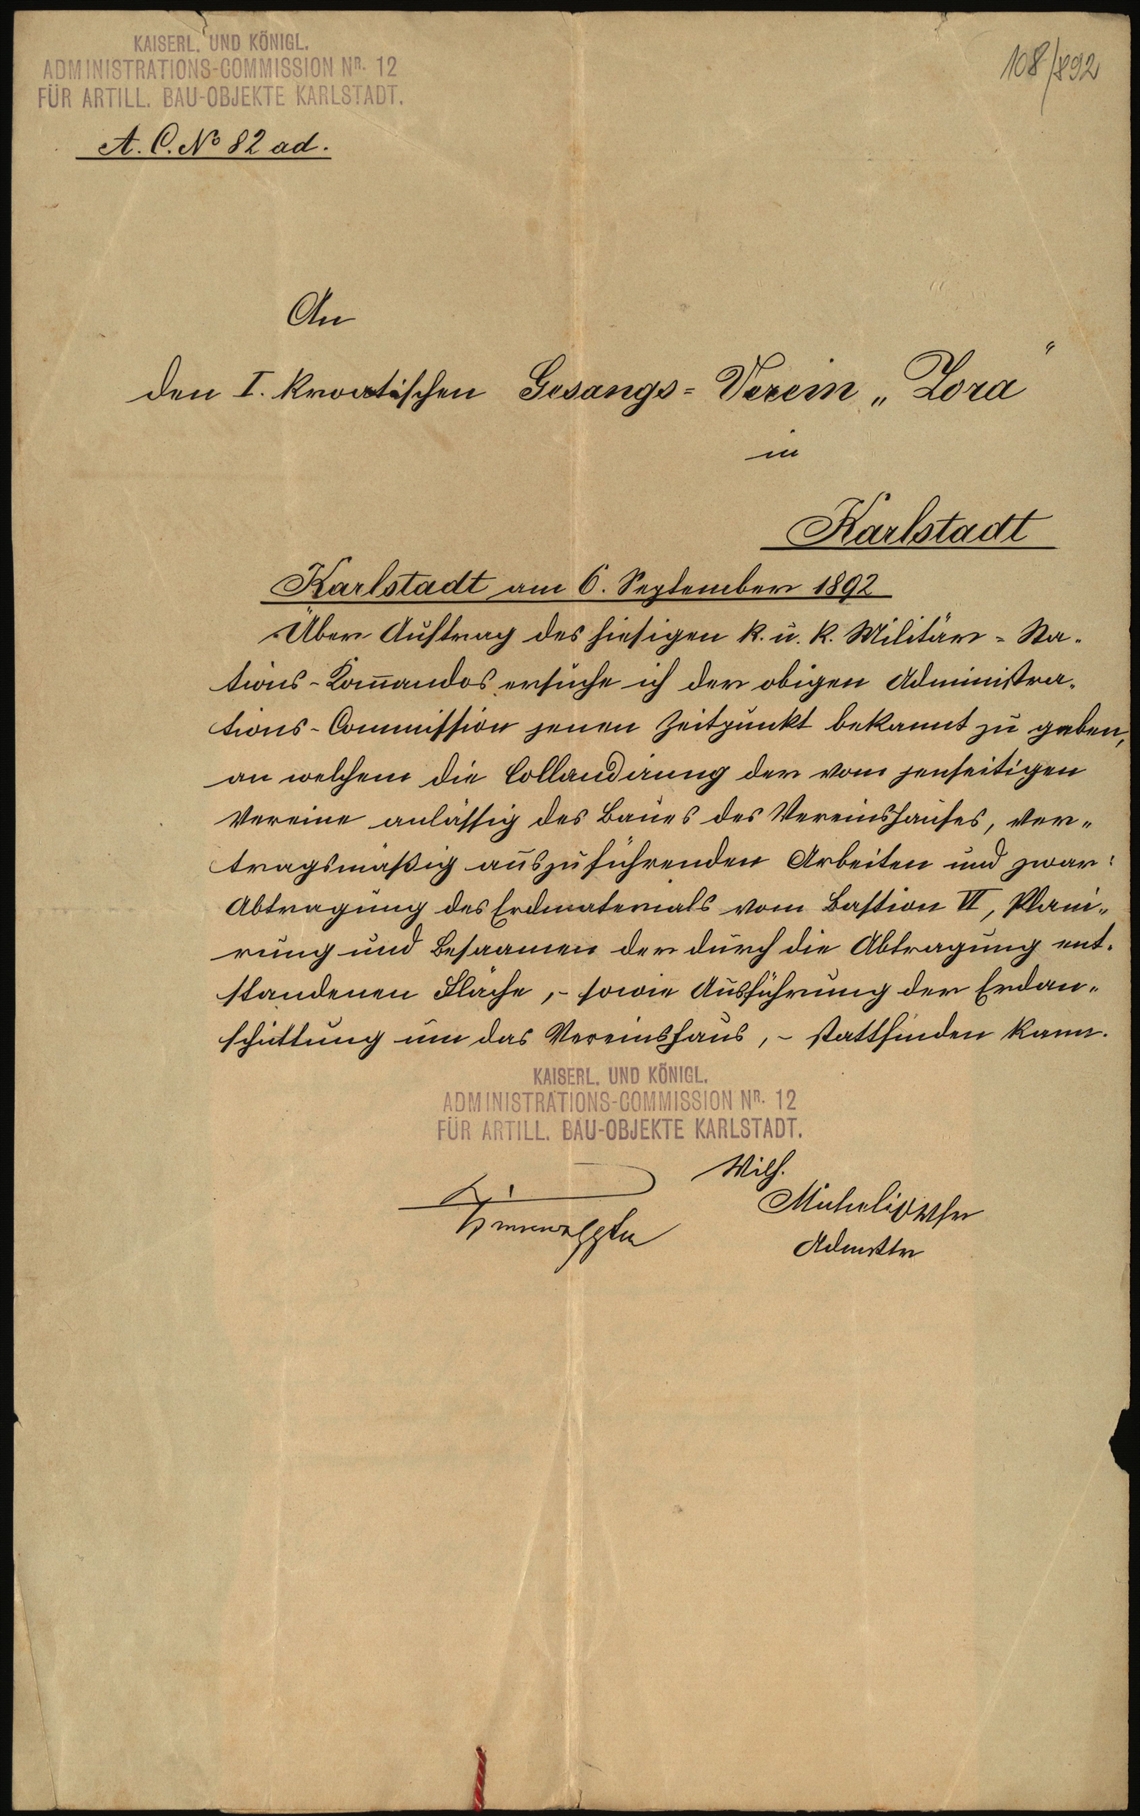 KAISERL. UND KÖNIGL.
ADMINISTRATIONS-COMMISSION Nr. 12
FÜR ARTILL. BAU-OBJEKTE KARLSTADT.
A. C. No 82 ad.
108/892
An
den I. kroatischen Gesangs=Verein „Zora“
in
Karlstadt
Karlstadt am 6. September 1892
Über Auftrag des hiesigen k. u. k. Militär=Sta-
tions-Kom̅andos ersuche ich der obigen Administra-
tions-Commission jenen Zeitpunkt bekannt zu geben,
an welchem die Collaudirung der vom jenseitigen
Vereine anlässig des Baues des Vereinshauses, ver-
tragsmäßig auszuführenden Arbeiten und zwar:
Abtragung des Erdmaterials vom Bastion VI, Plani-
rung und Besaamen der durch die Abtragung ent-
standenen Fläche, - sowie Ausführung der Erdan-
schüttung um das Vereinshaus, - stattfinden kann.
KAISERL. UND KÖNIGL.
ADMINISTRATIONS-COMMISSION Nr. 12
FÜR ARTILL. BAU-OBJEKTE KARLSTADT.
Wilh.